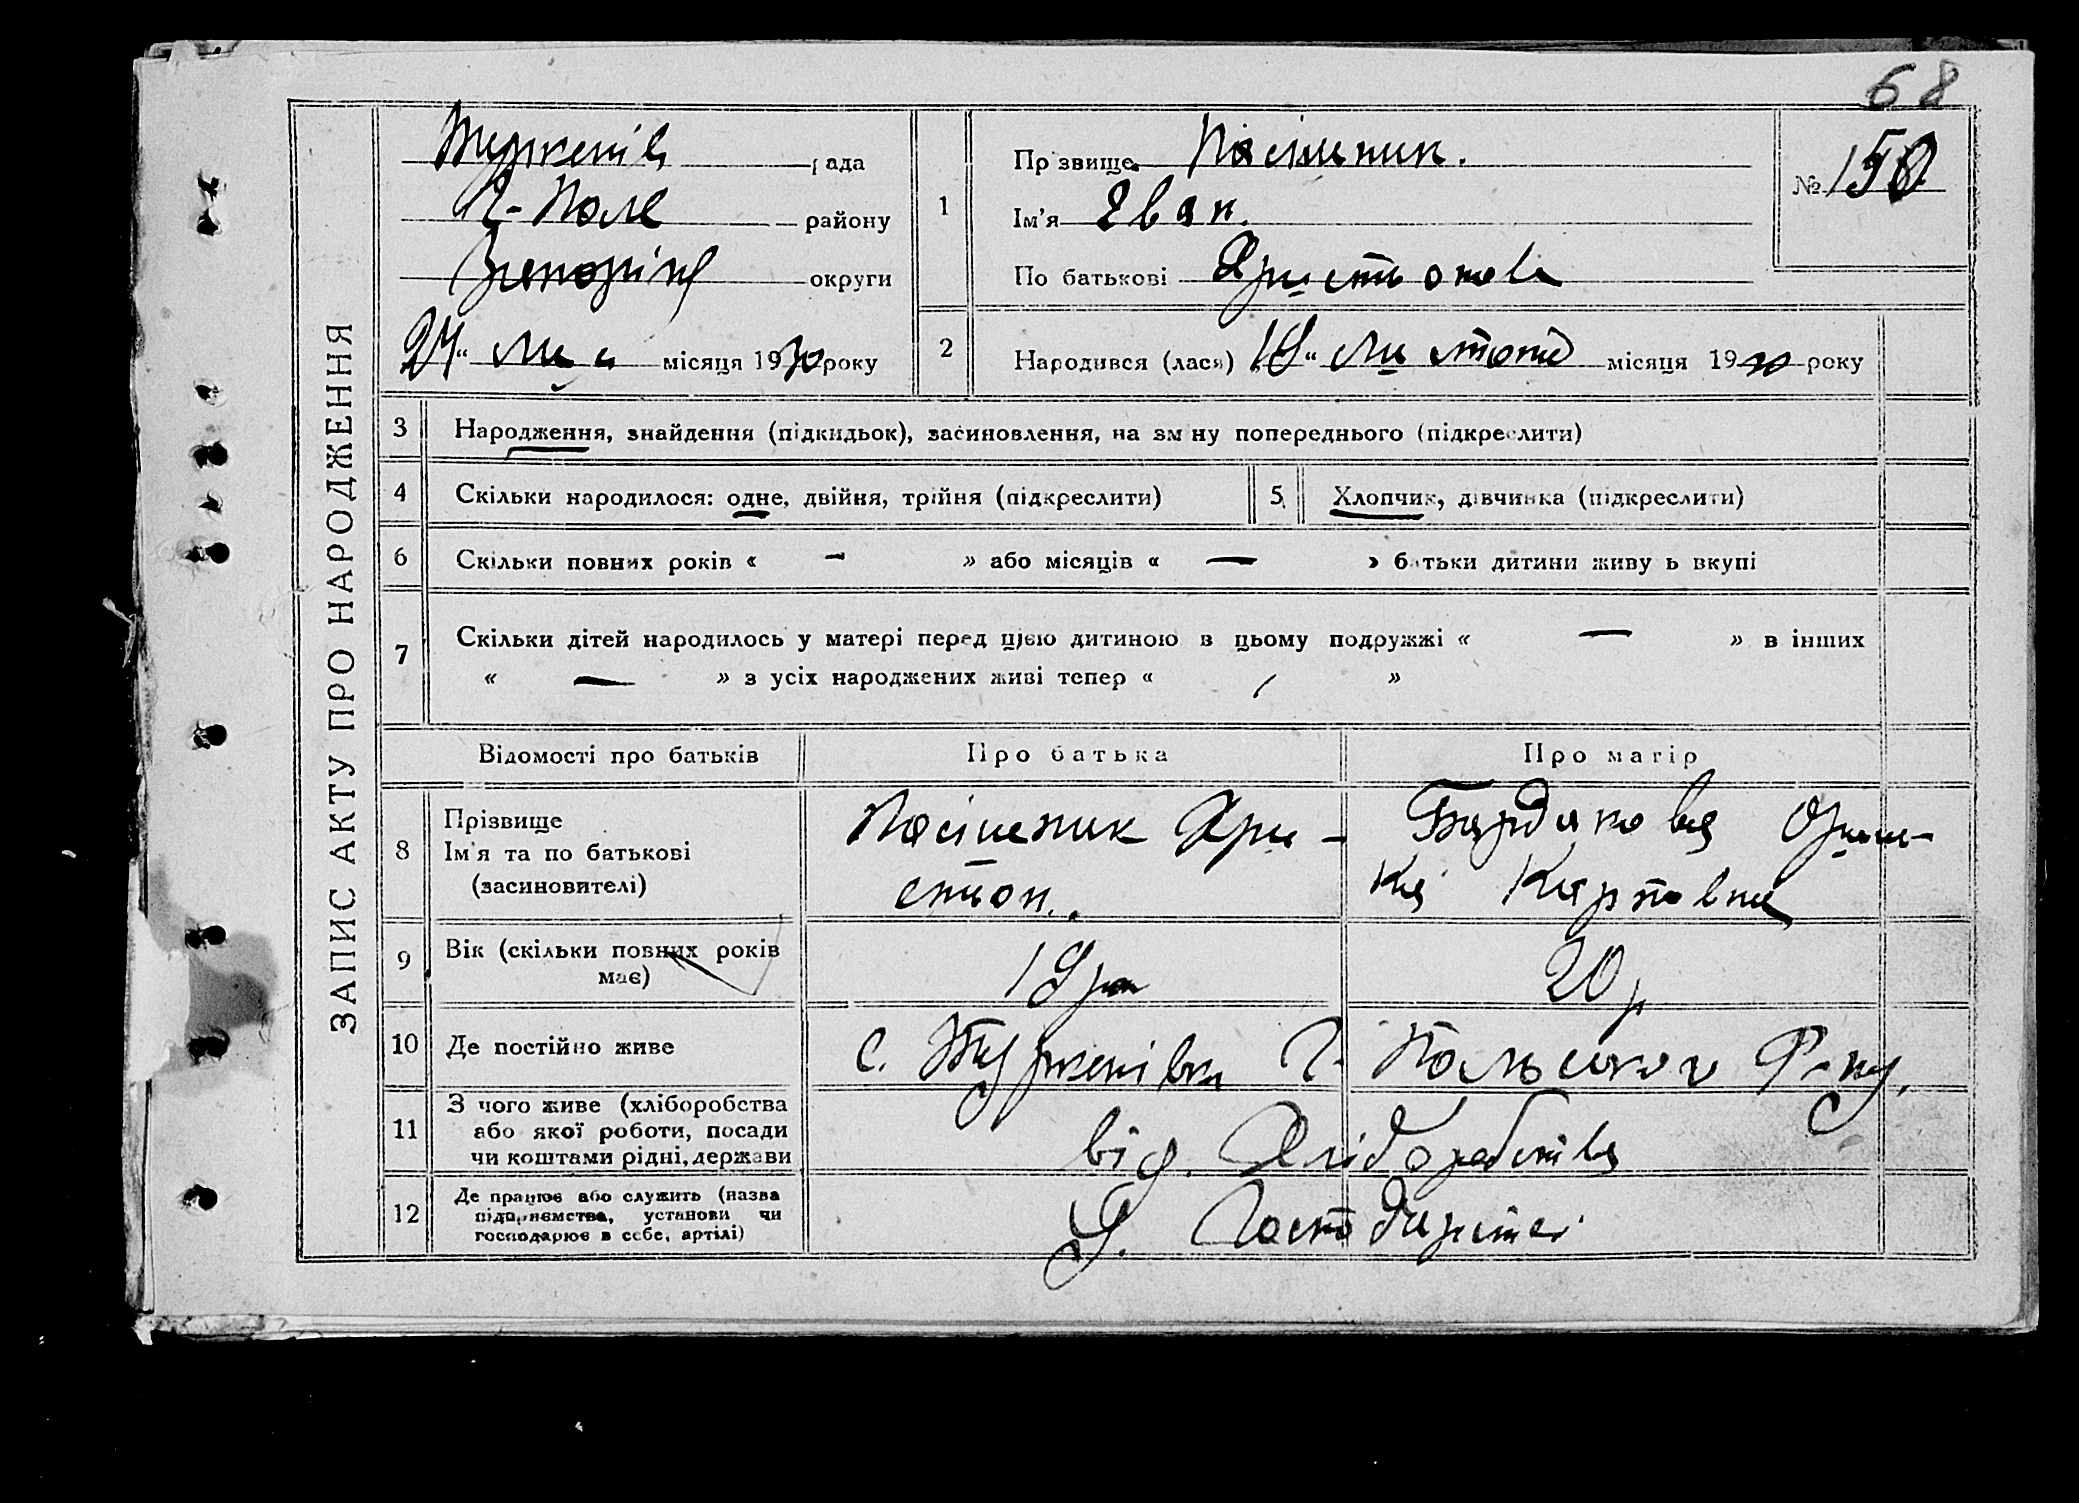 68
ЗАПИС АКТУ ПРО НАРОДЖЕННЯ
Туркенів рада
Г-Поле району
Запоріж округи
24 " лис місяця 1930 року
1
Прізвище Посіпник.
Ім'я Еван.
По батькові Христонов
№ 150
2
Народився (лася) 18 " листопад місяця 1930 року
3 Народження, знайдення (підкидьок), засиновлення, на зміну попереднього (підкреслити)
4 Скільки народилося: одне, двійня, трійня (підкреслити)
5 Хлопчик, дівчинка (підкреслити)
6 Скільки повних років « – » або місяців « — » батьки дитини живуть вкупі
7 Скільки дітей народилось у матері перед цією дитиною в цьому подружжі « — » в інших
« — » з усіх народжених живі тепер « »
Відомості про батьків Про батька Про матір
8 Прізвище
Ім'я та по батькові
(засиновителі)
Хри-
стон.
Карповна
9 Вік (скільки повних років
має)
19 р
20 р
10 Де постійно живе
с. Туркенівка Г- Польского Р-ну.
11 З чого живе (хліборобства
або якої роботи, посади
чи коштами рідні, держави
від. Хліборобства
12 Де працює або служить (назва
підприємства, установи чи
господарює в себе, артілі)
Господарстві